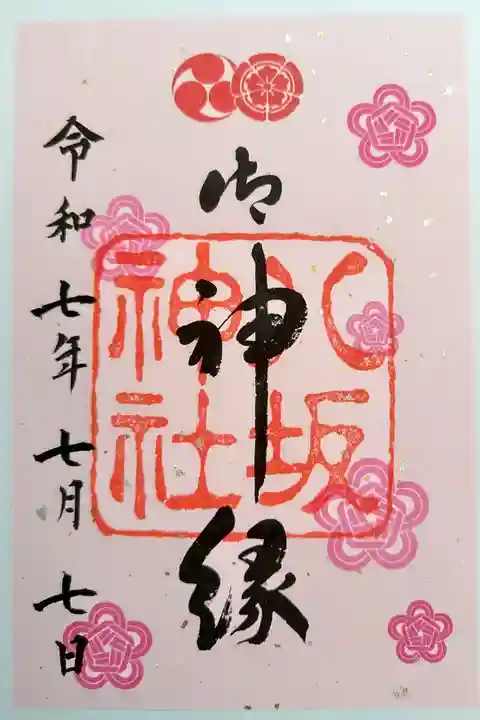 御神縁
八坂
神社
令和七年七月七日